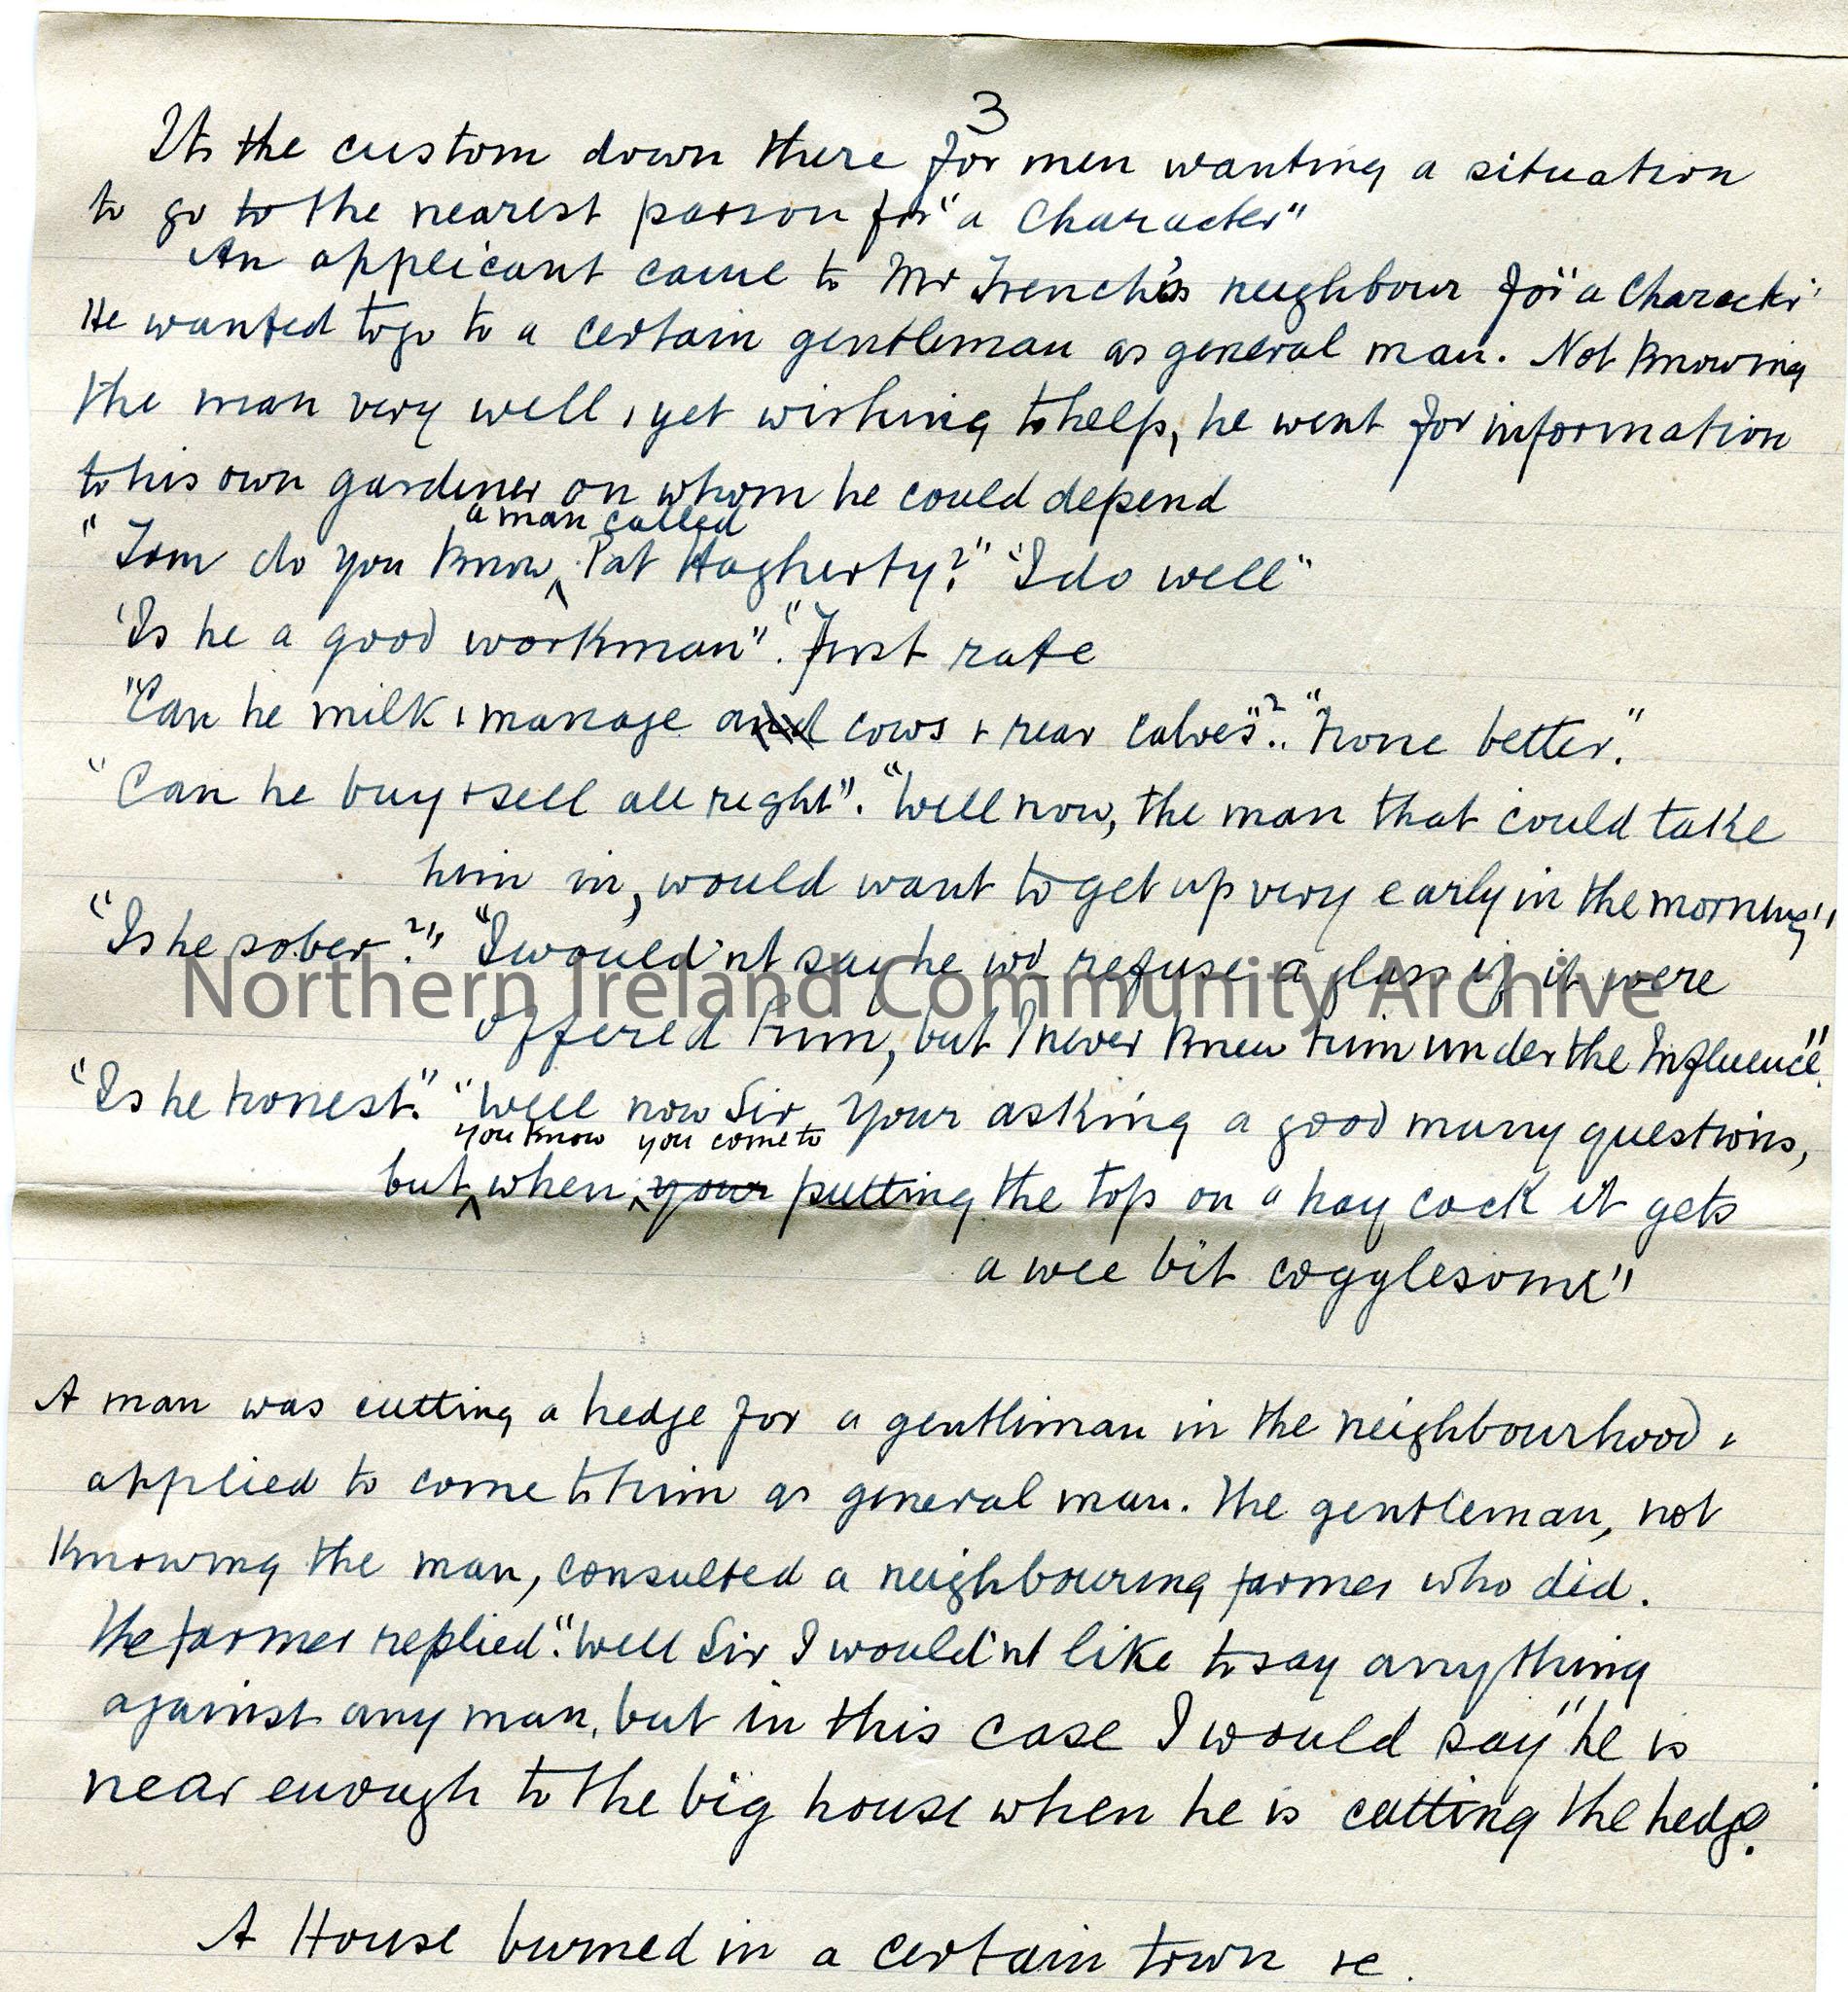 3
Its the custom down there for men wanting a situation
to go to the nearest parson for "a Character"
An applicant came to Mr Trench's neighbour for "a Character"
He wanted to go to a certain gentleman as general man. Not knowing
the man very well, yet wishing to help, he went for information
to his own gardiner on whom he could depend
a man called
"Tom do you know ^ Pat Hagherty?" "I do well"
"Is he a good workman". "First rate
"Can he milk & manage and cows & rear calves"? "None better."
"Can he buy & sell all right". "Well now, the man that could take
him in, would want to get up very early in the morning"
"Is he sober?" "I would'nt say he wd refuse a glass if it were
Northern Ireland Community Archive
offered him, but I never knew him under the Influence".
"Is he honest." "Well now Sir your asking a good many questions,
you know you come to
but ^ when ^ your putting the top on a hay cock it gets
a wee bit cogglesome"
A man was cutting a hedge for a gentliman in the neighbourhood &
applied to come to him as general man. The gentleman, not
knowing the man, consulted a neighbouring farmer who did.
The farmer replied. "Well Sir I would'nt like to say anything
against any man, but in this case I would say "he is
near enough to the big house when he is cutting the hedge.
A House burned in a certain town &c.